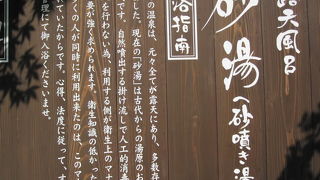 露天風呂
砂湯(砂噴き湯
浴指南
の温泉は、元々全てが露天にあり、多数存
した。現在の「砂湯」は古代からの湯原のお
です。自然噴出する掛け流しで人工的消毒
を行わない為、利用する側が衛生上のマナ
要が強く求められます。衛生知識の低かった
くの人が同時に利用出来たのは、このマナ
ていたからです。心得、法度に従って、す
理にて御入浴くださいませ。